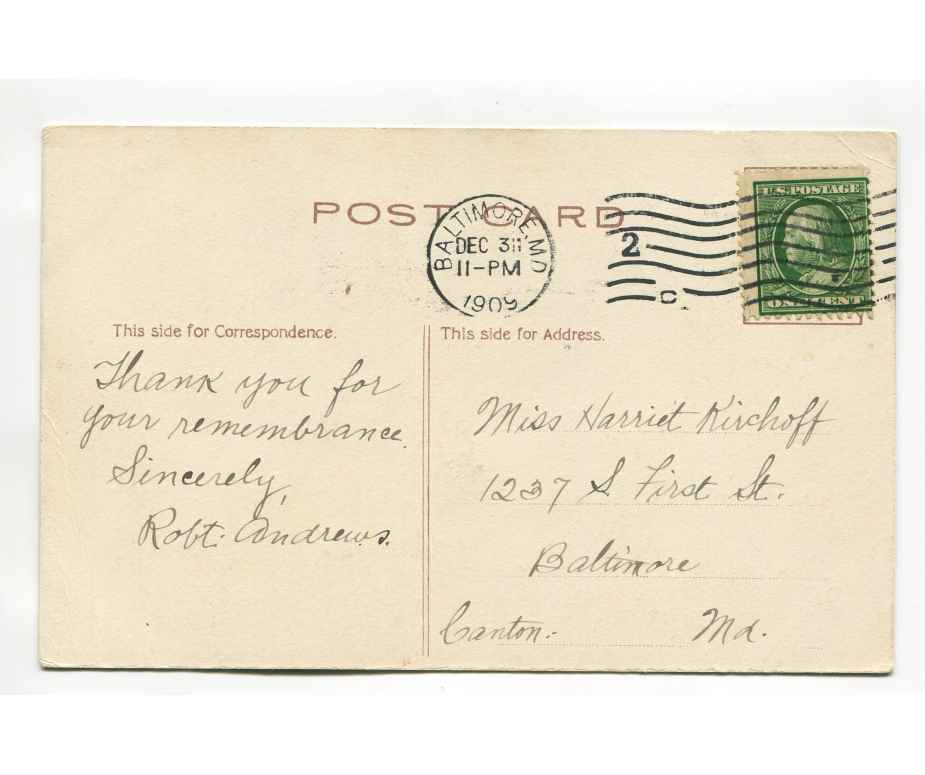 POST CARD
BALTIMORE, MD
DEC 31
11-PM
1909
2
C
U.S. POSTAGE
ONE CENT
This side for Correspondence.
Thank you for
your remembrance.
Sincerely,
Robt. Andrews.
This side for Address.
Miss Harriet Kirchoff
1237 S. First St.
Baltimore
Canton. Md.